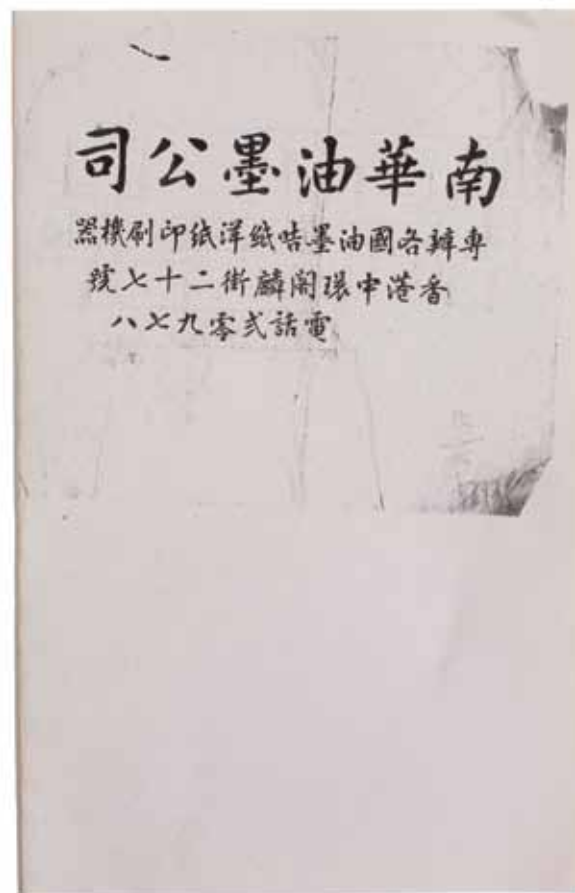 南華油墨公司
專辦各國油墨咭紙洋紙印刷機器
香港中環閣麟街二十七號
電話弍零九七八